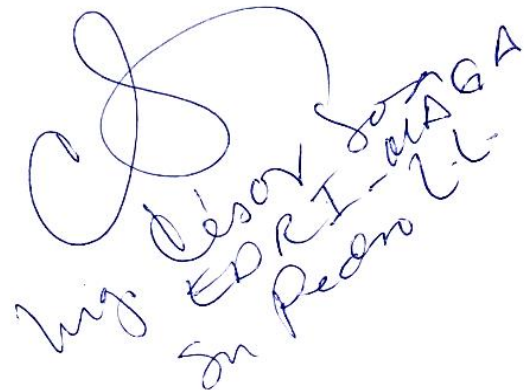 Ing. César Sosa
EDRI-MAGA
Sn Pedro L.L.